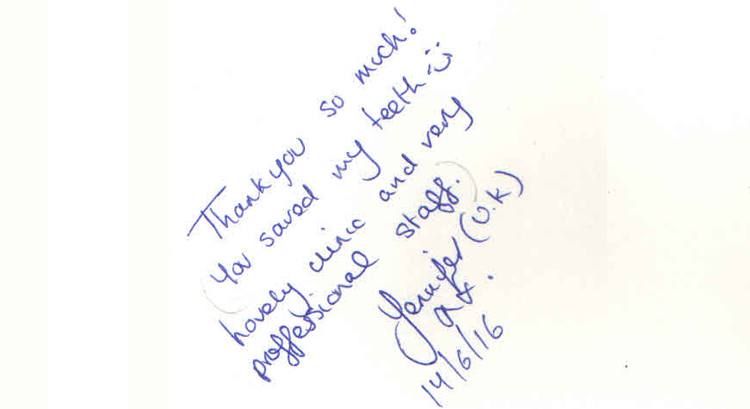 Thank you so much!
You saved my teeth :)
Lovely clinic and very
proffessional staff.
Jennifer (U.K)
14/6/16